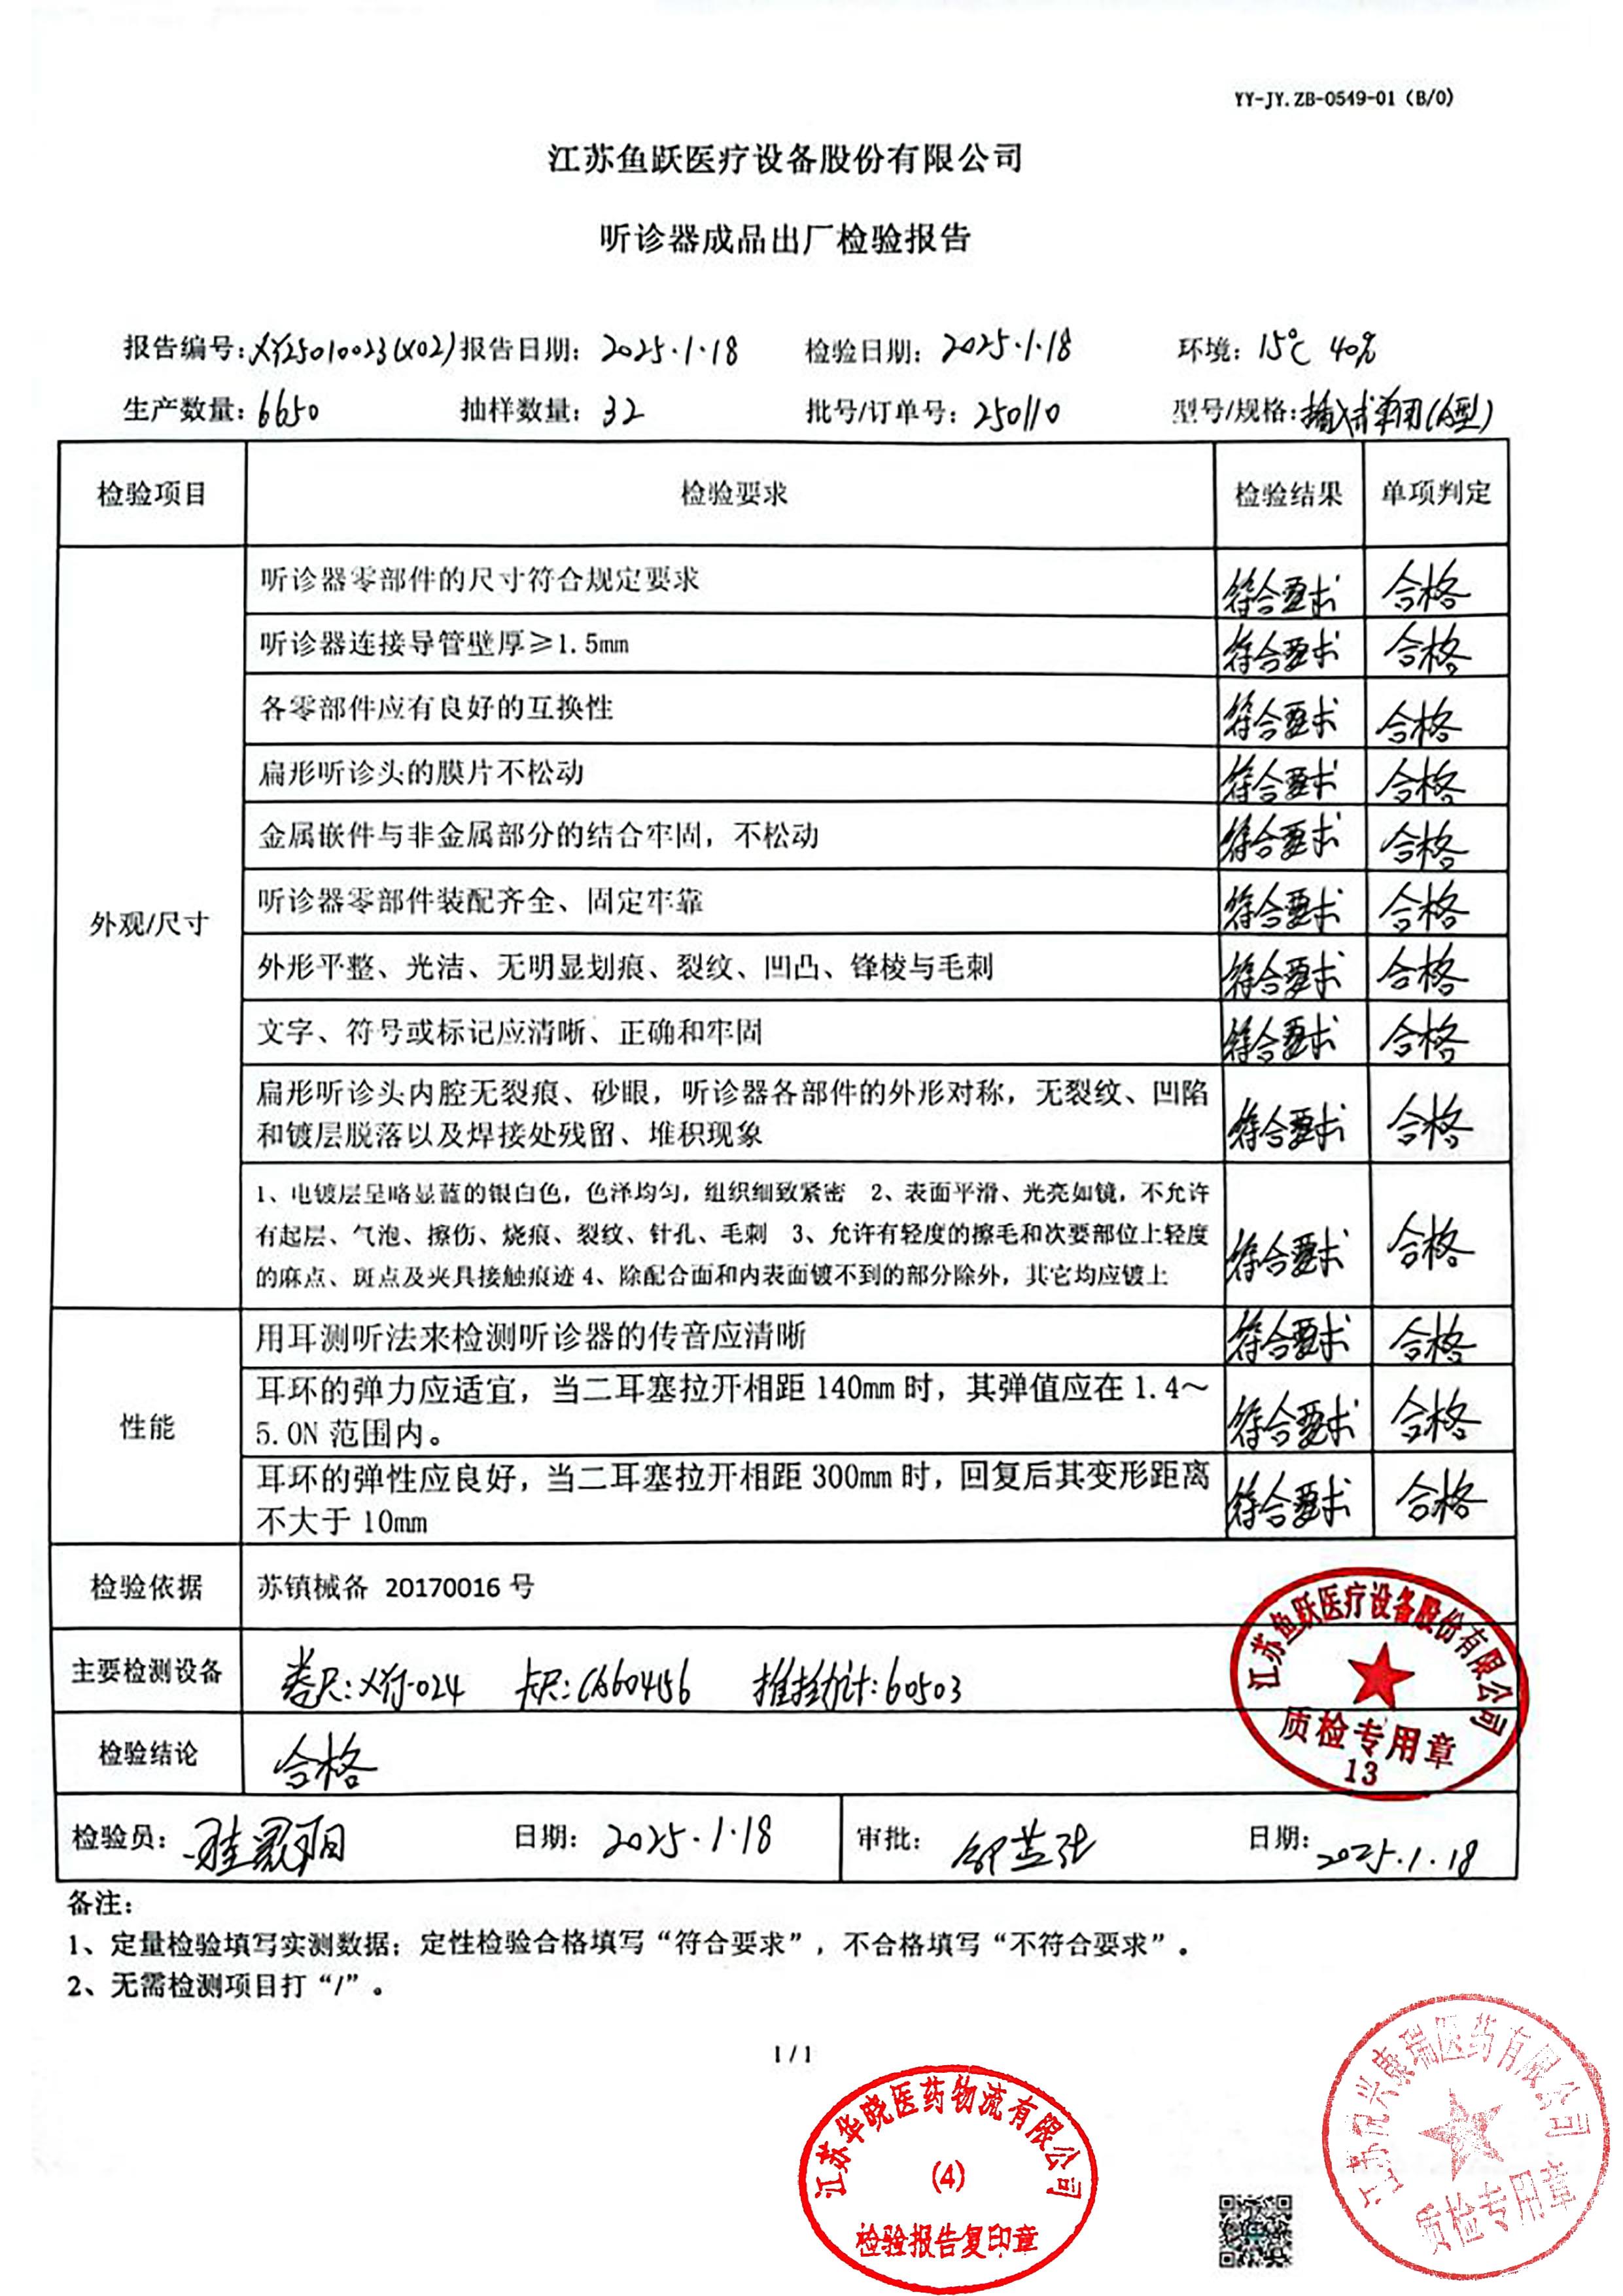 YY-JY.ZB-0549-01（B/0）
江苏鱼跃医疗设备股份有限公司
听诊器成品出厂检验报告
报告编号：XY25010023(X02) 报告日期：2025.1.18 检验日期：2025.1.18 环境：15℃ 40%
生产数量：6650 抽样数量：32 批号/订单号：250110 型号/规格：插入式单用(A型)
检验项目 检验要求 检验结果 单项判定
外观/尺寸
听诊器零部件的尺寸符合规定要求 符合要求 合格
听诊器连接导管壁厚≥1.5mm 符合要求 合格
各零部件应有良好的互换性 符合要求 合格
扁形听诊头的膜片不松动 符合要求 合格
金属嵌件与非金属部分的结合牢固，不松动 符合要求 合格
听诊器零部件装配齐全、固定牢靠 符合要求 合格
外形平整、光洁、无明显划痕、裂纹、凹凸、锋棱与毛刺 符合要求 合格
文字、符号或标记应清晰、正确和牢固 符合要求 合格
扁形听诊头内腔无裂痕、砂眼，听诊器各部件的外形对称，无裂纹、凹陷
和镀层脱落以及焊接处残留、堆积现象 符合要求 合格
1、电镀层呈略显蓝的银白色，色泽均匀，组织细致紧密 2、表面平滑、光亮如镜，不允许
有起层、气泡、擦伤、烧痕、裂纹、针孔、毛刺 3、允许有轻度的擦毛和次要部位上轻度
的麻点、斑点及夹具接触痕迹4、除配合面和内表面镀不到的部分除外，其它均应镀上 符合要求 合格
性能
用耳测听法来检测听诊器的传音应清晰 符合要求 合格
耳环的弹力应适宜，当二耳塞拉开相距140mm时，其弹值应在1.4～
5.0N范围内。 符合要求 合格
耳环的弹性应良好，当二耳塞拉开相距300mm时，回复后其变形距离
不大于10mm 符合要求 合格
检验依据 苏镇械备 20170016号
主要检测设备 卷尺：XY-024 卡尺：CA60456 推拉力计：60503
检验结论 合格
江苏鱼跃医疗设备股份有限公司
质检专用章
13
检验员： 日期：2025.1.18 审批： 日期：2025.1.18
备注：
1、定量检验填写实测数据；定性检验合格填写“符合要求”，不合格填写“不符合要求”。
2、无需检测项目打“/”。
1/1
江苏华晓医药物流有限公司
(4)
检验报告复印章
兴康瑞医药有限公司
质检专用章